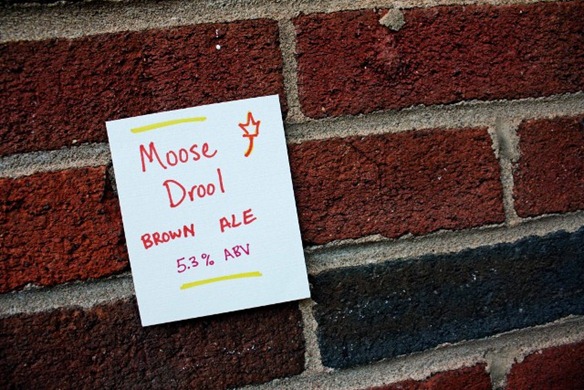 Moose
Drool
BROWN ALE
5.3% ABV